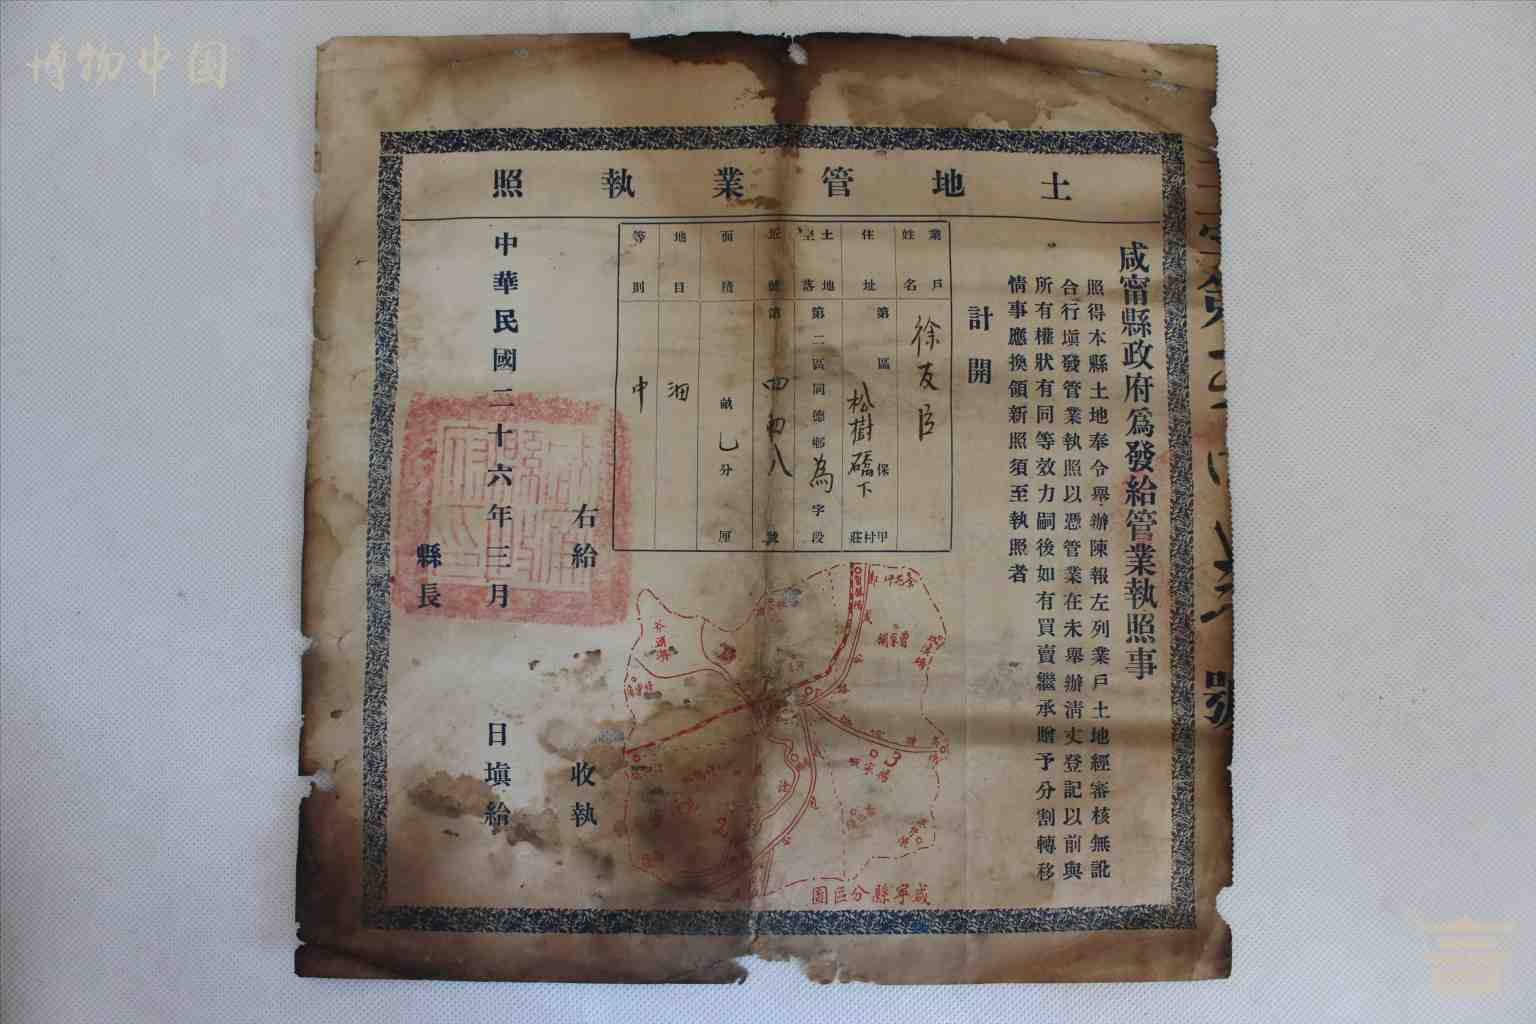 博物中国
土地管業執照
咸甯縣政府為發給管業執照事
照得本縣土地奉令舉辦陳報左列業戶土地經審核無訛
合行塡發管業執照以憑管業在未舉辦清丈登記以前與
所有權狀有同等效力嗣後如有買賣繼承贈予分割轉移
情事應換領新照須至執照者
計開
業戶姓名 徐友臣
住址 第 區 保 甲村莊 松樹礄下
土地坐落 第二區同德鄉為字段
坵號 第 四四八 號
面積 畝 乙分 厘
地目
等則 中
右給 收執
中華民國二十六年三月 日塡給
縣長
咸寧縣分區圖
2
3
號